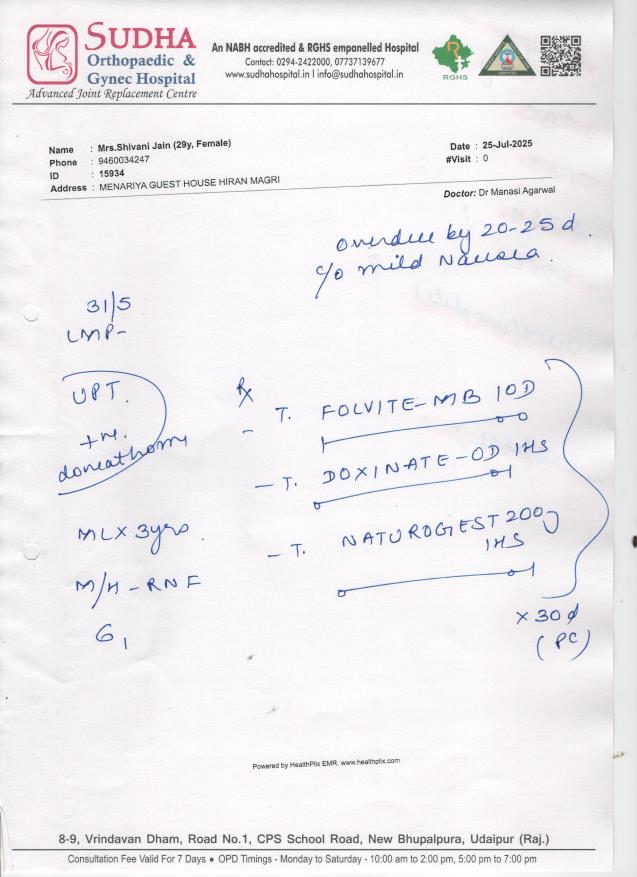 SUDHA
Orthopaedic &
Gynec Hospital
Advanced Joint Replacement Centre
An NABH accredited & RGHS empanelled Hospital
Contact: 0294-2422000, 07737139677
www.sudhahospital.in I info@sudhahospital.in
RGHS
Name : Mrs.Shivani Jain (29y, Female)
Phone : 9460034247
ID : 15934
Address : MENARIYA GUEST HOUSE HIRAN MAGRI
Date : 25-Jul-2025
#Visit : 0
Doctor: Dr Manasi Agarwal
overdue by 20-25 d.
c/o mild Nausea.
31/5
LMP-
UPT.
+ve.
done at home
MLX 3yrs.
M/H - RNF
G1
Rx
- T. FOLVITE-MB 1OD
- T. DOXINATE-OD 1HS
- T. NATUROGEST 200
1HS
x 30d
(PC)
Powered by HealthPlix EMR. www.healthplix.com
8-9, Vrindavan Dham, Road No.1, CPS School Road, New Bhupalpura, Udaipur (Raj.)
Consultation Fee Valid For 7 Days ● OPD Timings - Monday to Saturday - 10:00 am to 2:00 pm, 5:00 pm to 7:00 pm